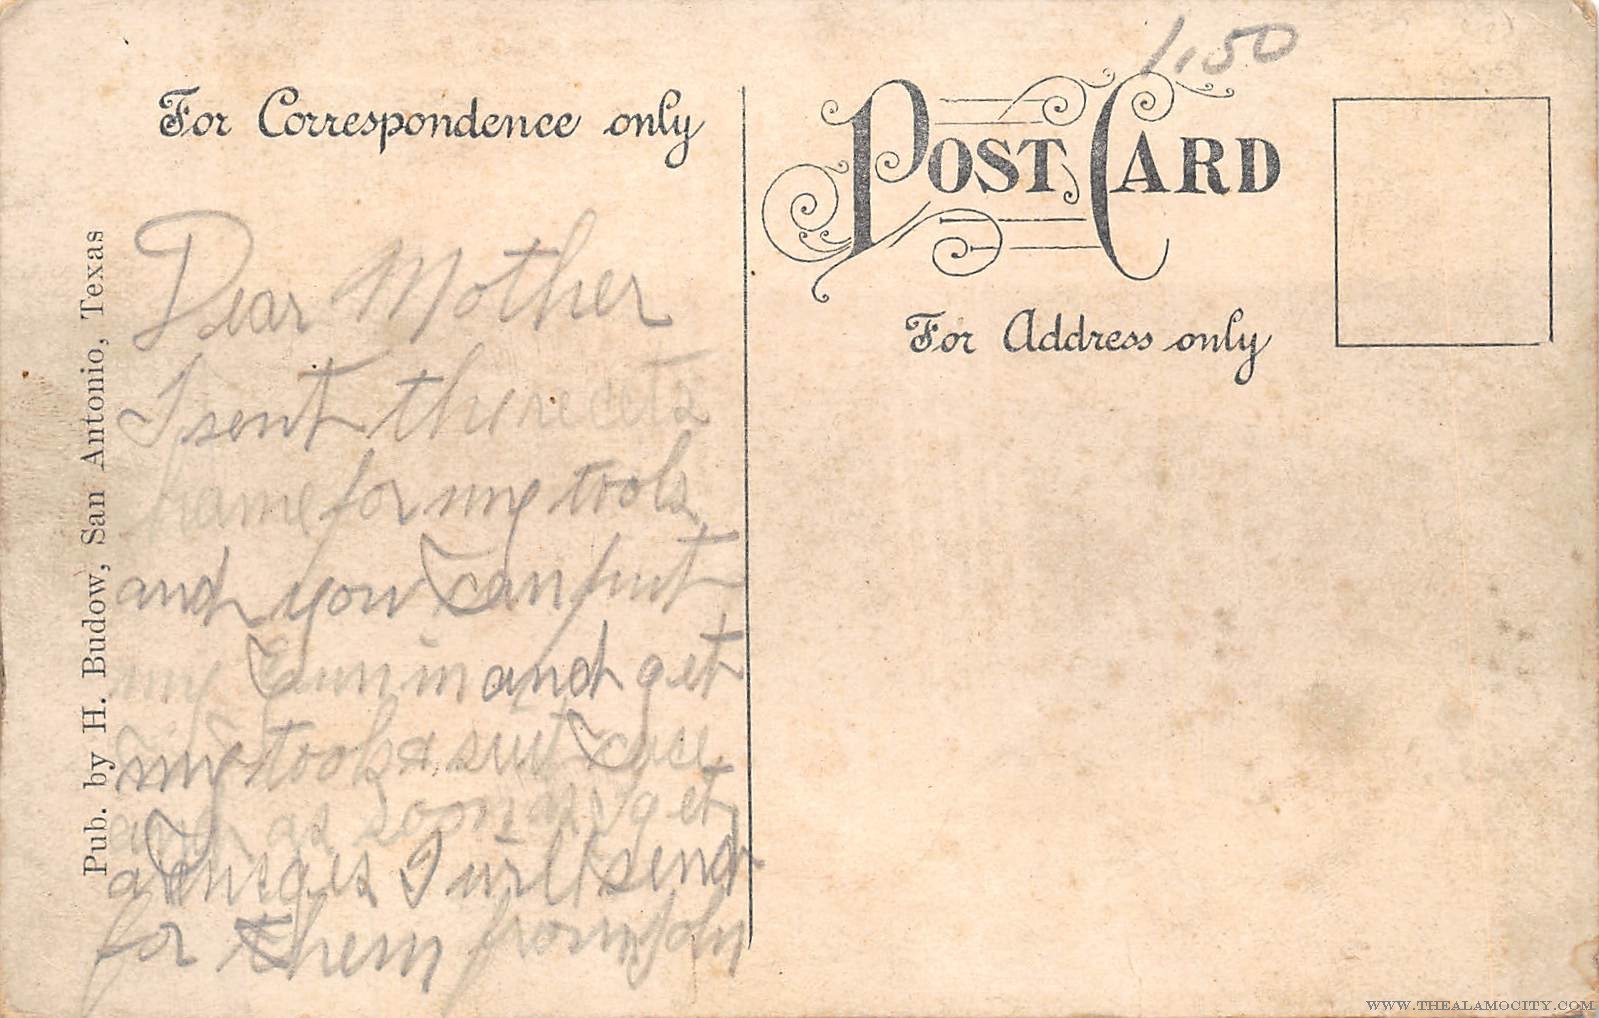 1.50
For Correspondence only
POST CARD
For Address only
Pub. by H. Budow, San Antonio, Texas
Dear Mother
I sent the
home for my tools
and you can put
my in and get
my tools & suit case
and as soon as I get
a I will send
for them from John
WWW.THEALAMOCITY.COM